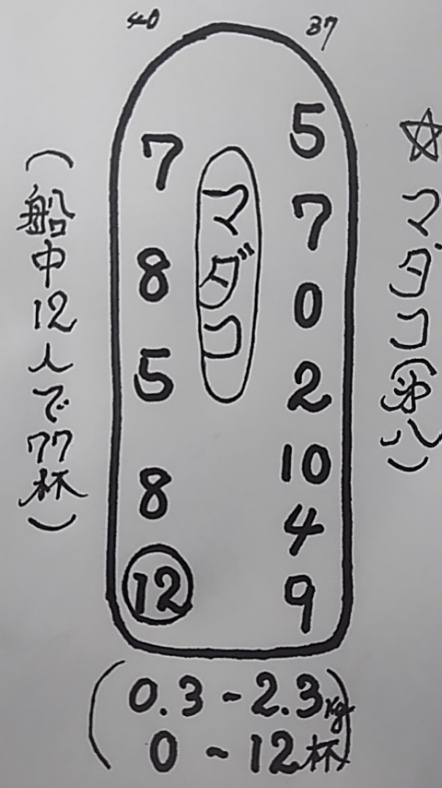 ☆マダコ(第八)
40
37
マダコ
7
8
5
8
12
5
7
0
2
10
4
9
(船中12人で77杯)
(0.3-2.3kg
0~12杯)